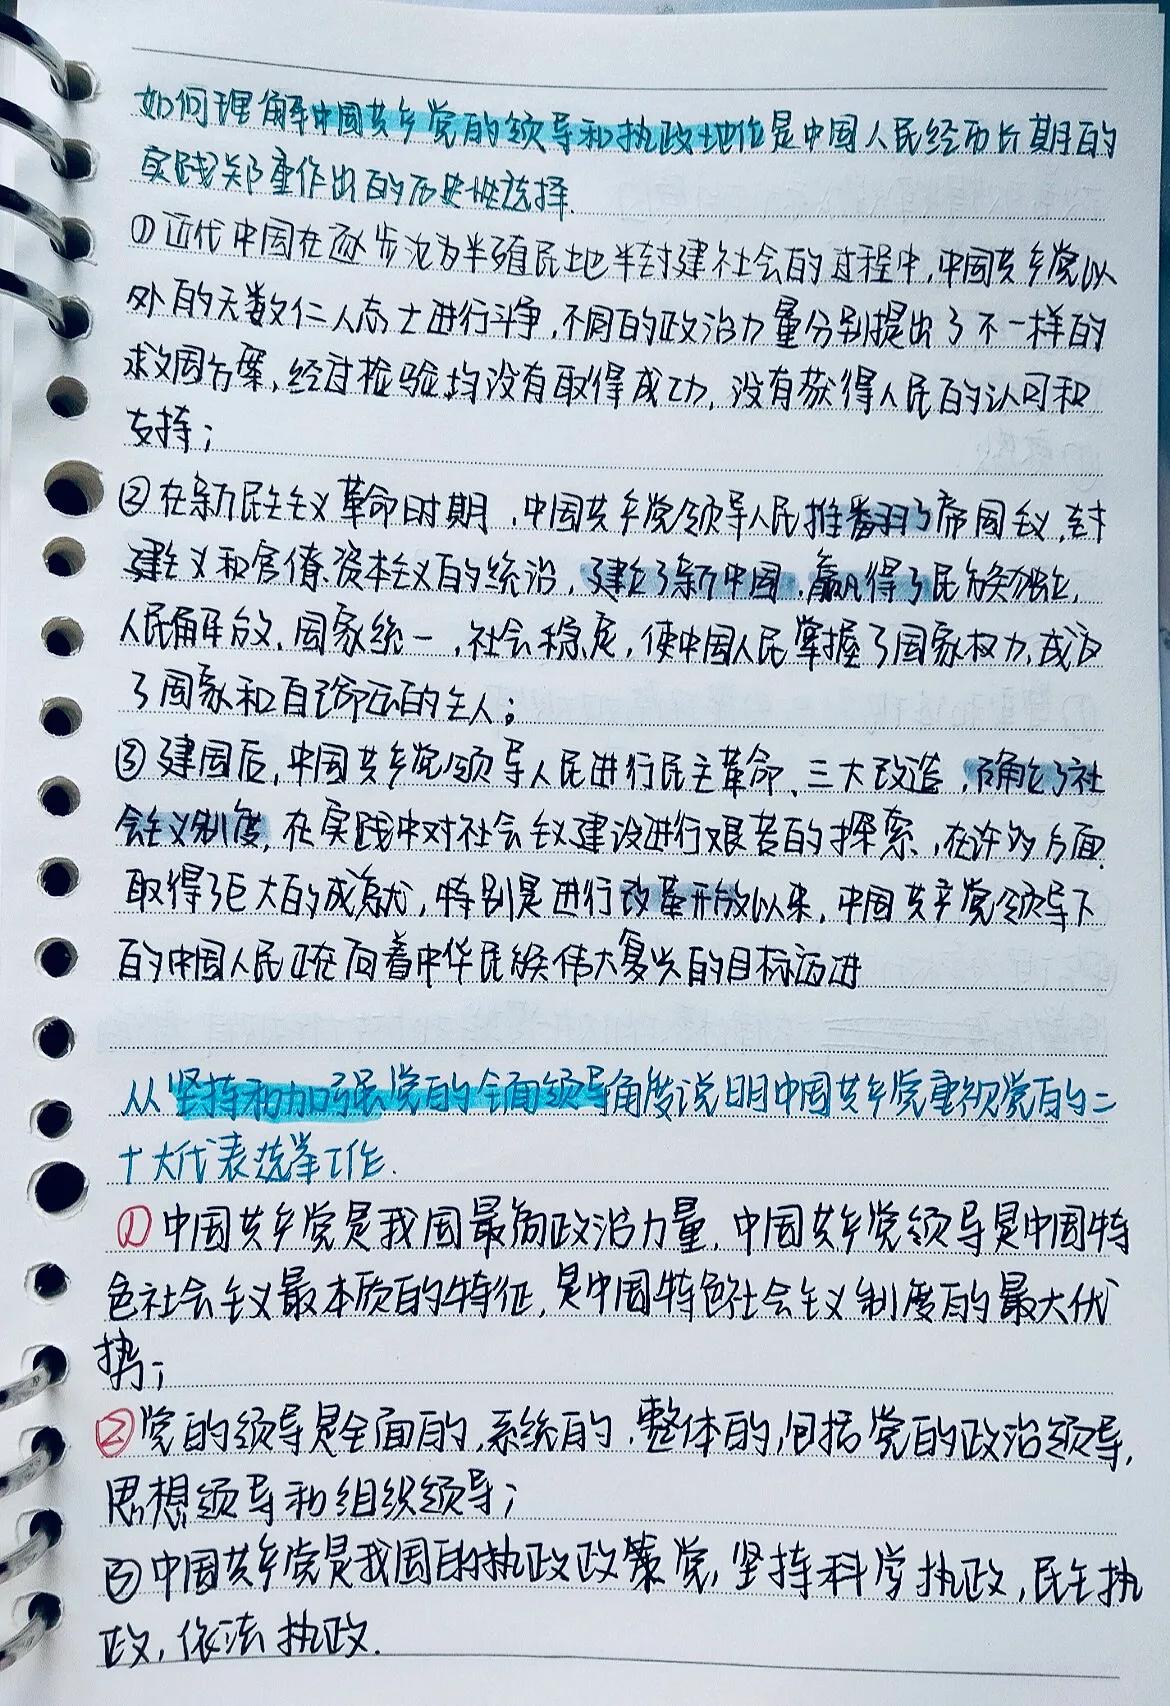 如何理解中国共产党的领导和执政地位是中国人民经历长期的
实践郑重作出的历史性选择.
①近代中国在逐步沦为半殖民地半封建社会的过程中,中国共产党以
外的无数仁人志士进行斗争,不同的政治力量分别提出了不一样的
救国方案,经过检验均没有取得成功,没有获得人民的认可和
支持;
②在新民主主义革命时期,中国共产党领导人民推翻了帝国主义,封
建主义和官僚资本主义的统治,建立了新中国,赢得了民族独立,
人民解放、国家统一,社会稳定,使中国人民掌握了国家权力,成为
了国家和自己命运的主人;
③建国后,中国共产党领导人民进行民主革命、三大改造,确立了社
会主义制度,在实践中对社会主义建设进行艰苦的探索,在许多方面
取得了巨大的成就,特别是进行改革开放以来,中国共产党领导下
的中国人民正在向着中华民族伟大复兴的目标迈进
从坚持和加强党的全面领导角度说明中国共产党重视党的二
十大代表选举工作.
①中国共产党是我国最高政治力量,中国共产党领导是中国特
色社会主义最本质的特征,是中国特色社会主义制度的最大优
势;
②党的领导是全面的,系统的,整体的,包括党的政治领导,
思想领导和组织领导;
③中国共产党是我国的执政政策党,坚持科学执政,民主执
政,依法执政.